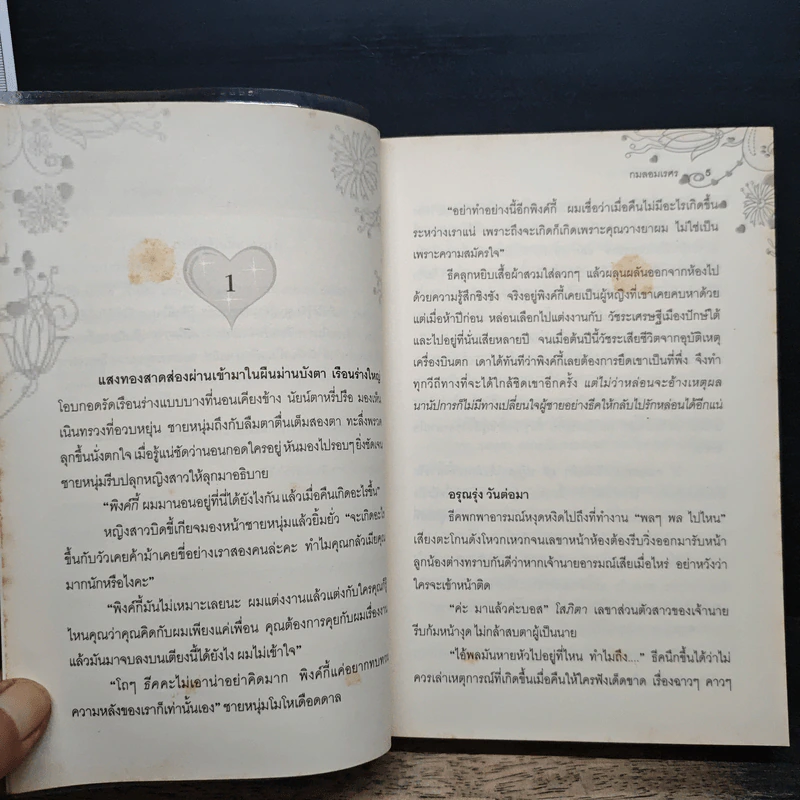 1
แสงทองสาดส่องผ่านเข้ามาในผืนม่านบังตา เรือนร่างใหญ่
โอบกอดรัดเรือนร่างแบบบางที่นอนเคียงข้าง นัยน์ตาหรี่ปรือ มองเห็น
เนินทรวงที่อวบหยุ่น ชายหนุ่มถึงกับลืมตาตื่นเต็มสองตา ทะลึ่งพรวด
ลุกขึ้นนั่งตกใจ เมื่อรู้แน่ชัดว่านอนกอดใครอยู่ หันมองไปรอบๆ ยิ่งชัดเจน
ชายหนุ่มรีบปลุกหญิงสาวให้ลุกมาอธิบาย
“พิงค์กี้ ผมมานอนอยู่ที่นี่ได้ยังไงกัน แล้วเมื่อคืนเกิดอะไรขึ้น”
หญิงสาวบิดขี้เกียจมองหน้าชายหนุ่มแล้วยิ้มยั่ว “จะเกิดอะไร
ขึ้นกับวัวเคยค้าม้าเคยขี่อย่างเราสองคนล่ะคะ ทำไมคุณกลัวเมียคุณ
มากนักหรือไงคะ”
“พิงค์กี้มันไม่เหมาะเลยนะ ผมแต่งงานแล้วแต่งกับใครคุณก็รู้
ไหนคุณว่าคุณคิดกับผมเพียงแค่เพื่อน คุณต้องการคุยกับผมเรื่องงาน
แล้วมันมาจบลงบนเตียงนี้ได้ยังไง ผมไม่เข้าใจ”
“โถๆ ธีคคะไม่เอาน่าอย่าคิดมาก พิงค์กี้แค่อยากทบทวน
ความหลังของเราก็เท่านั้นเอง” ชายหนุ่มโมโหเดือดดาล
กมลอมเรศร 5
“อย่าทำอย่างนี้อีกพิงค์กี้ ผมเชื่อว่าเมื่อคืนไม่มีอะไรเกิดขึ้น
ระหว่างเราแน่ เพราะถึงจะเกิดก็เกิดเพราะคุณวางยาผม ไม่ใช่เป็น
เพราะความสมัครใจ”
ธีคลุกหยิบเสื้อผ้าสวมใส่ลวกๆ แล้วผลุนผลันออกจากห้องไป
ด้วยความรู้สึกชิงชัง จริงอยู่พิงค์กี้เคยเป็นผู้หญิงที่เขาเคยคบหาด้วย
แต่เมื่อห้าปีก่อน หล่อนเลือกไปแต่งงานกับ วัชระเศรษฐีเมืองปักษ์ใต้
และไปอยู่ที่นั่นเสียหลายปี จนเมื่อต้นปีนี้วัชระเสียชีวิตจากอุบัติเหตุ
เครื่องบินตก เดาได้ทันทีว่าพิงค์กี้เลยต้องการยึดเขาเป็นที่พึ่ง จึงทำ
ทุกวิถีทางที่จะได้ใกล้ชิดเขาอีกครั้ง แต่ไม่ว่าหล่อนจะอ้างเหตุผล
นานัปการก็ไม่มีทางเปลี่ยนใจผู้ชายอย่างธีคให้กลับไปรักหล่อนได้อีกแน่
อรุณรุ่ง วันต่อมา
ธีคพกพาอารมณ์หงุดหงิดไปถึงที่ทำงาน “พลๆ พล ไปไหน”
เสียงตะโกนดังโหวกเหวกจนเลขาหน้าห้องต้องรีบวิ่งออกมารับหน้า
ลูกน้องต่างทราบกันดีว่าหากเจ้านายอารมณ์เสียเมื่อไหร่ อย่าหวังว่า
ใครจะเข้าหน้าติด
“ค่ะ มาแล้วค่ะบอส” โสภิตา เลขาส่วนตัวสาวของเจ้านาย
รีบก้มหน้างุด ไม่กล้าสบตาผู้เป็นนาย
“ไอ้พลมันหายหัวไปอยู่ที่ไหน ทำไมถึง....” ธีคนึกขึ้นได้ว่าไม่
ควรเล่าเหตุการณ์ที่เกิดขึ้นเมื่อคืนให้ใครฟังเด็ดขาด เรื่องฉาวๆ คาวๆ